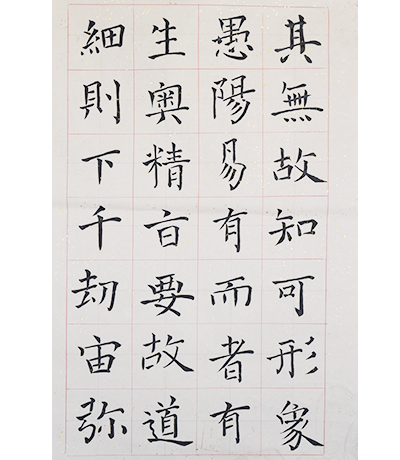 其無故知可形象
愚陽易有而者有
生奥精㫖要故道
細則下千劫宙弥